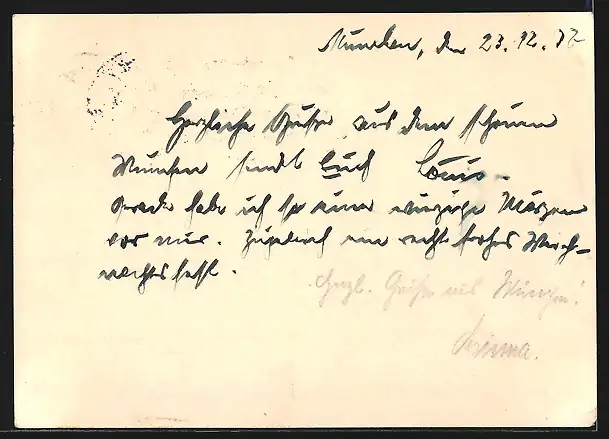 München, den 23.12.37
Herzliche Grüße aus dem schönen
München sendet Euch Louis.
Gerade habe ich so eine winzige
vor mir. Zugleich ein recht frohes Weih-
nachtsfest.
Herzl. Grüße aus München!